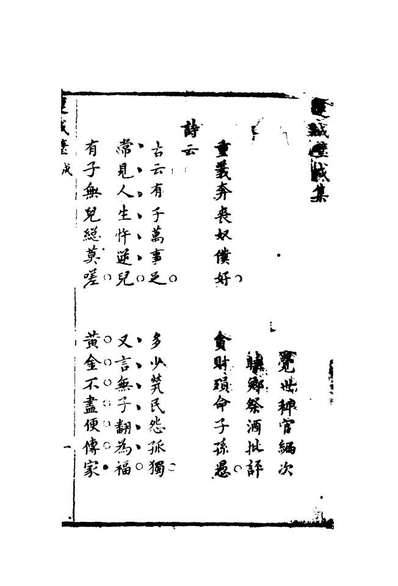 連城璧戌集
覺世稗官編次
睡鄉祭酒批評
重義奔喪奴僕好 貪財殞命子孫愚
詩云
古云有子萬事足 多少煢民怨孤獨
常見人生忤逆兒 又言無子翻為福
有子無兒總莫嗟 黃金不盡便傳家
連城璧 戌 一